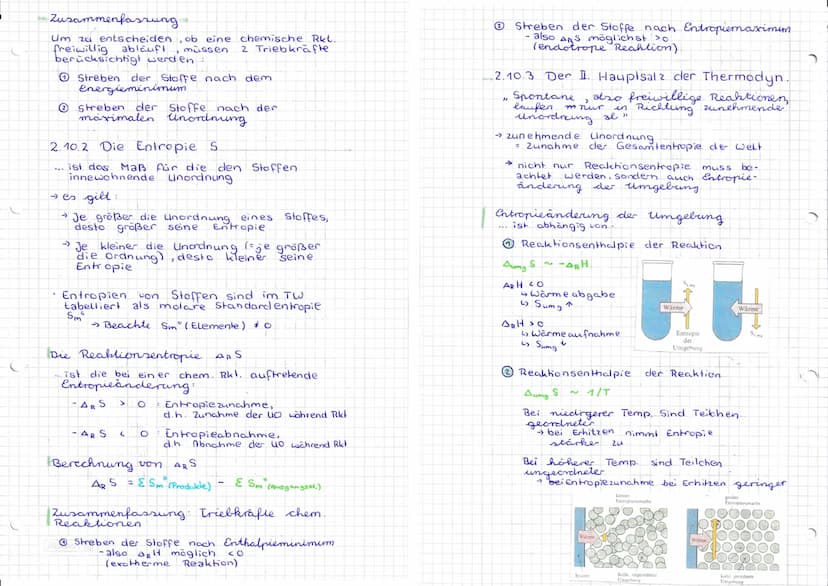 Zusammenfassung
Um zu entscheiden, ob eine chemische Rkt.
freiwillig abläuft, müssen 2 Triebkräfte
berücksichtigt werden:
① Streben der Stoffe nach dem
Energieminimum
② Streben der Stoffe nach der
maximalen Unordnung
2.10.2 Die Entropie S
... ist das Maß für die den Stoffen
innewohnende Unordnung
→ es gilt:
→ Je größer die Unordnung eines Stoffes,
desto größer seine Entropie
→ Je kleiner die Unordnung (= je größer
die Ordnung), desto kleiner seine
Entropie
· Entropien von Stoffen sind im TW
tabelliert als molare Standardentropie
Sm°
→ Beachte Sm° (Elemente) ≠ 0
Die Reaktionsentropie ΔRS
... ist die bei einer chem. Rkt. auftretende
Entropieänderung:
- ΔRS > 0 : Entropiezunahme,
d.h. Zunahme der UO während Rkt
- ΔRS < 0 : Entropieabnahme,
d.h. Abnahme der UO während Rkt
Berechnung von ΔRS
ΔRS = Σ Sm° (Produkte) - Σ Sm° (Ausgangsst.)
Zusammenfassung: Triebkräfte chem.
Reaktionen
① Streben der Stoffe nach Enthalpieminimum
- also ΔRH möglich <0
(exotherme Reaktion)
② Streben der Stoffe nach Entropiemaximum
- also ΔRS möglichst >0
(endotrope Reaktion)
2.10.3 Der II. Hauptsatz der Thermodyn.
„Spontane, also freiwillige Reaktionen,
laufen nur in Richtung zunehmende
Unordnung ab"
→ zunehmende Unordnung
= Zunahme der Gesamtentropie der Welt
→ nicht nur Reaktionsentropie muss be-
achtet werden, sondern auch Entropie-
änderung der Umgebung
Entropieänderung der Umgebung
... ist abhängig von:
① Reaktionsenthalpie der Reaktion
ΔumgS ~ -ΔRH
ΔRH <0
↳ Wärmeabgabe
↳ Sumg ↑
ΔRH >0
↳ Wärmeaufnahme
↳ Sumg ↓
Sumg
Wärme
Wärme
Entropie
der
Umgebung
Sumg
② Reaktionsenthalpie der Reaktion
ΔumgS ~ 1/T
Bei niedrigerer Temp. sind Teilchen
geordneter
→ bei Erhitzen nimmt Entropie
stärker zu
Bei höherer Temp. sind Teilchen
ungeordneter
→ bei Entropiezunahme bei Erhitzen geringer
Entropiezunahme
Entropiezunahme
Wärme
Wärme
System
Umgebung
Umgebung